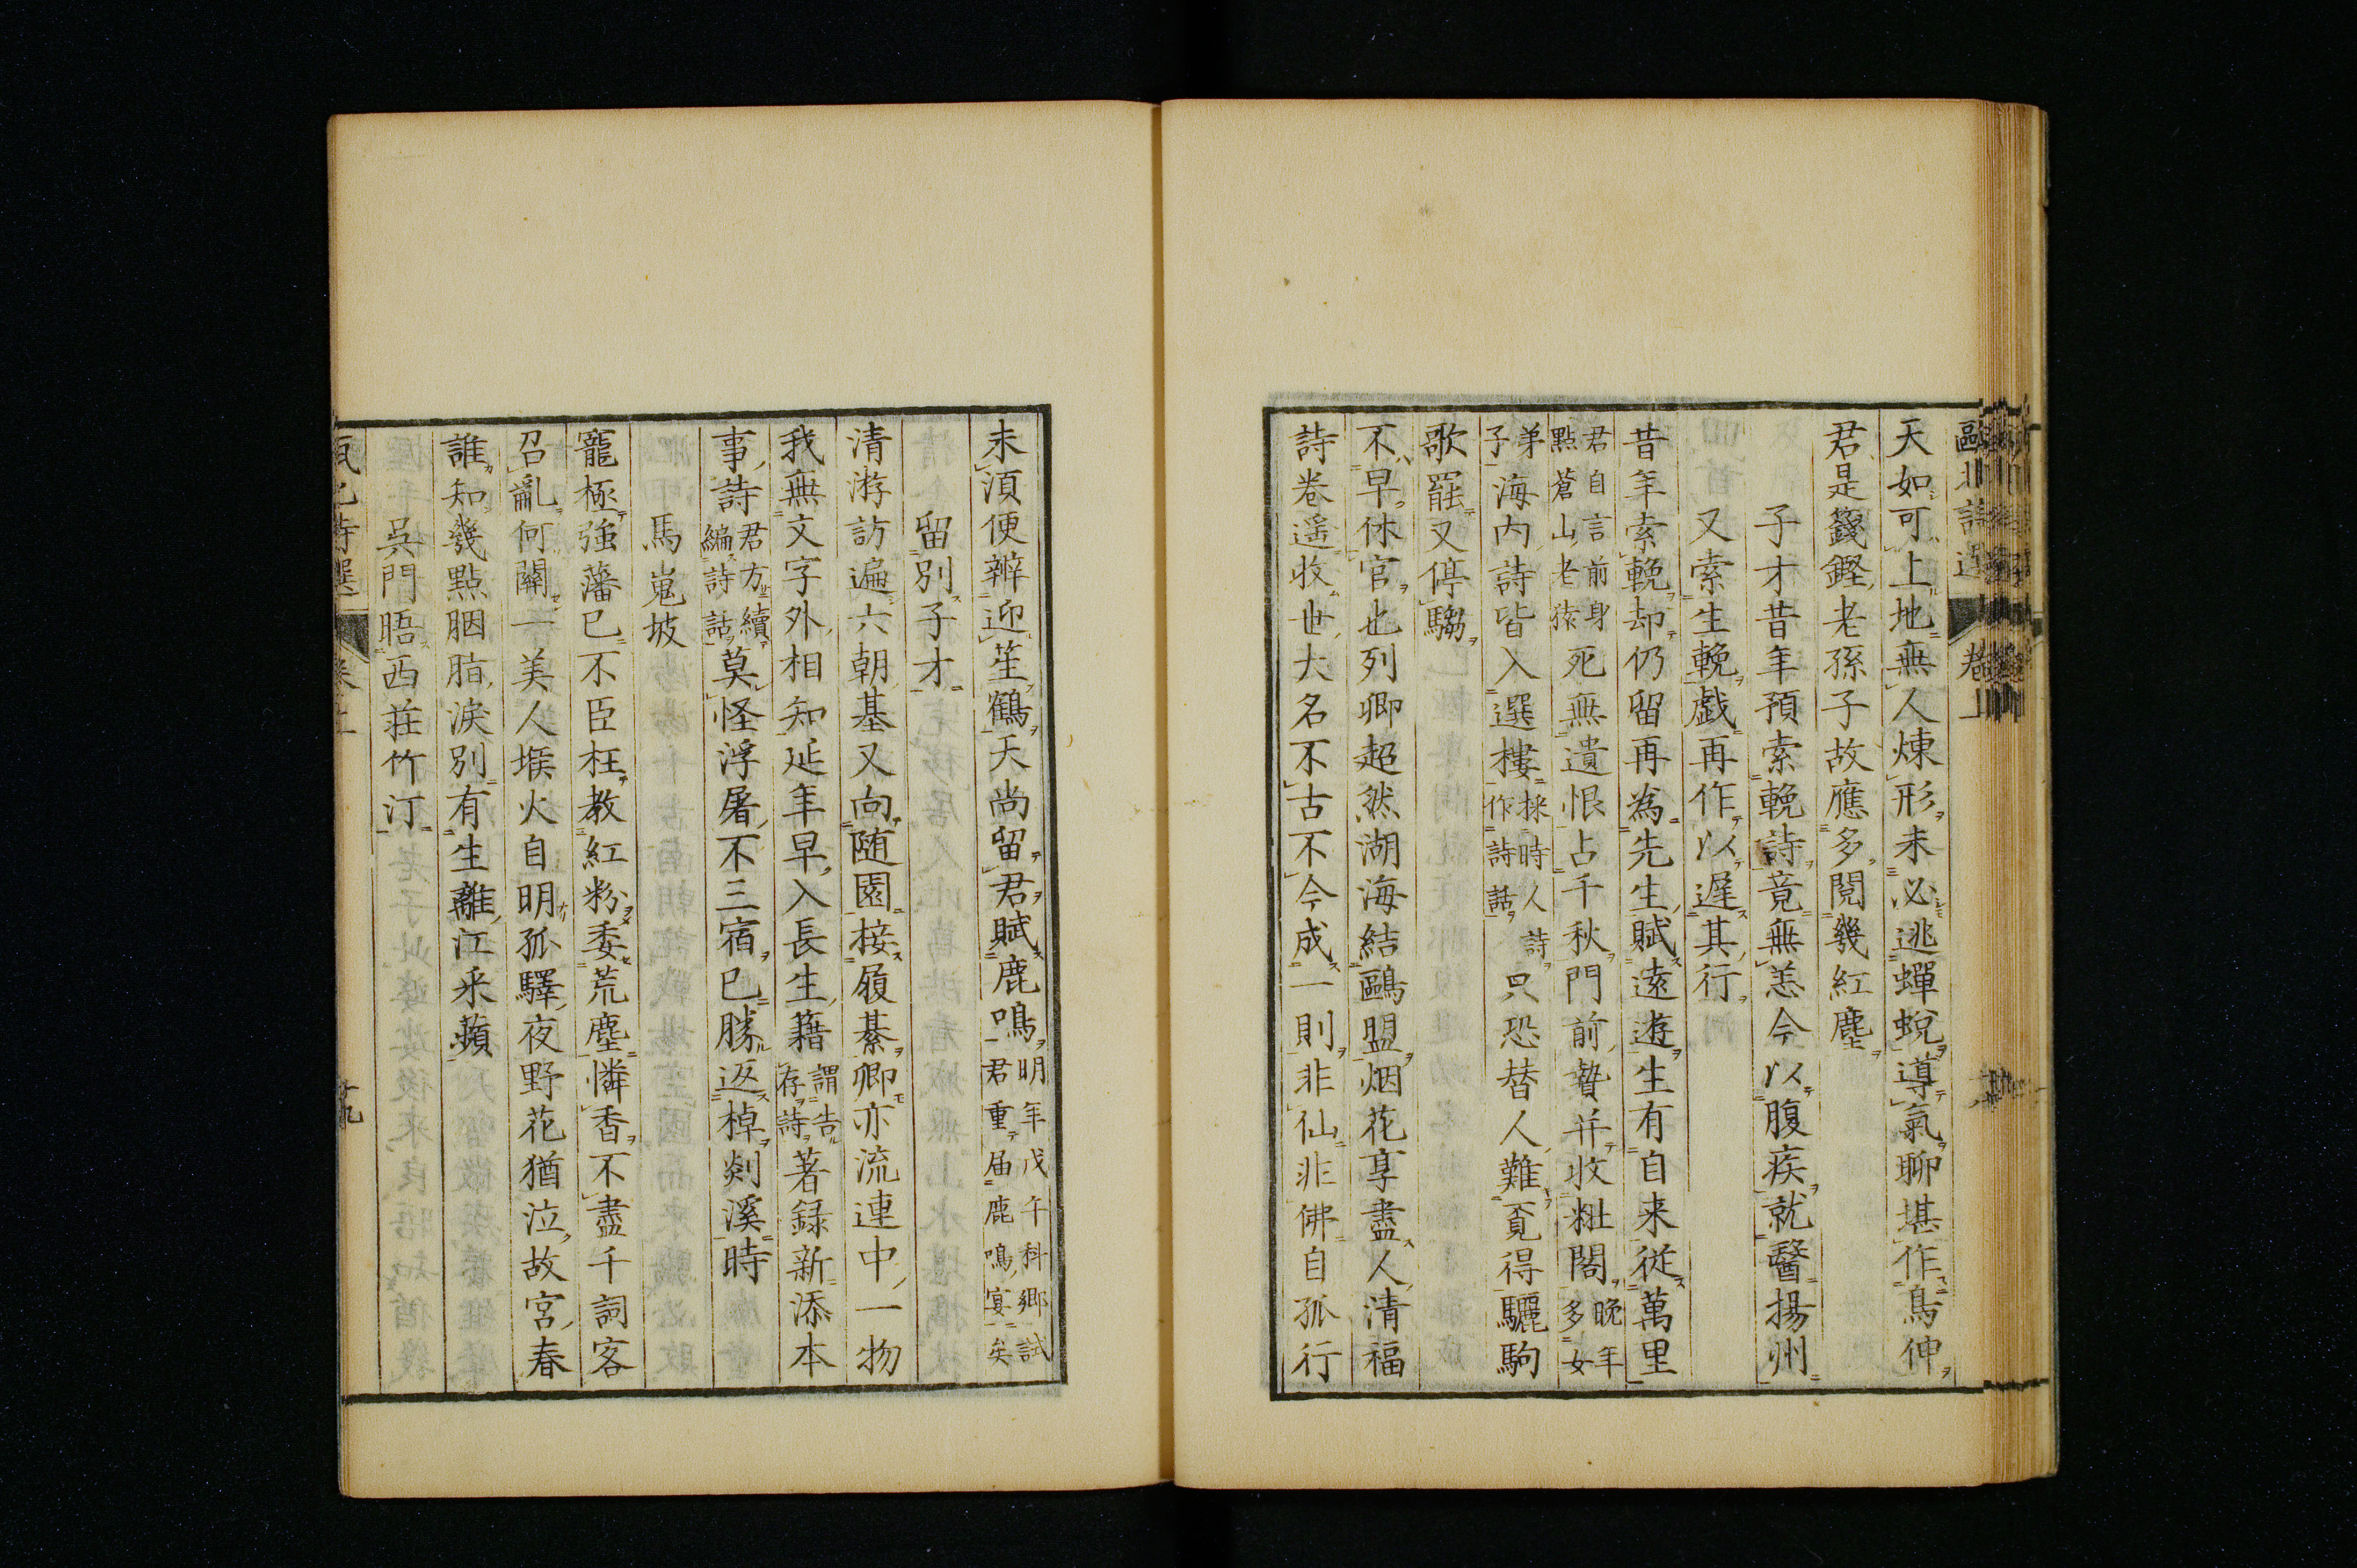 甌北詩選 卷上
天如可上地無人煉形未必逃蟬蛻導氣聊堪作鳥伸
君是籛鏗老孫子故應多閱幾紅塵
子才昔年預索輓詩竟無恙今以腹疾就醫揚州
又索生輓戲再作以遲其行
昔年索輓却仍留再為先生賦遠遊生有自来從萬里
君自言前身點蒼山老猿死無遺恨占千秋門前贄幷收粧閣晚年多女
弟子海内詩皆入選樓採時人詩作詩話只恐替人難覔得驪駒
歌罷又停騶
不早休官也列卿超然湖海結鷗盟烟花享盡人清福
詩卷遥收世大名不古不今成一則非仙非佛自孤行
未須便辦迎笙鶴天尚留君賦鹿鳴明年戊午科鄉試君重届鹿鳴宴矣
留別子才
清游訪遍六朝基又向随園接履綦卿亦流連中一物
我無文字外相知延年早入長生籍謂告存詩著録新添本
事詩君方續編詩話莫怪浮屠不三宿已勝返棹剡溪時
馬嵬坡
寵極強藩已不臣枉教紅粉委荒塵憐香不盡千詞客
召亂何關一美人堠火自明孤驛夜野花猶泣故宮春
誰知幾點胭脂淚別有生離江采蘋
吳門晤西莊竹汀
甌北詩選 卷上 十九